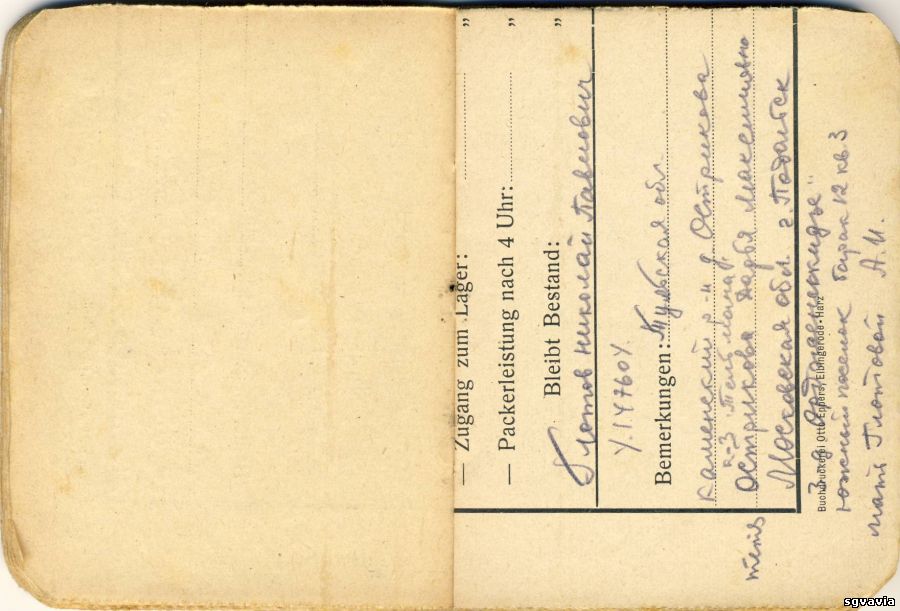 — Zugang zum Lager: "
— Packerleistung nach 4 Uhr: "
Bleibt Bestand: "
Глотов Николай Павлович
У.147604
Bemerkungen: Тульская обл.
Каменский р-н д. Острикова
к-з Тельмана
Острикова Дарья Максимовна
тётя
Московская обл. г. Подольск
З-д Орджоникидзе"
Buchdruckerei Otto Eppers, Elbingerode-Harz
Южный поселок барак 12 кв. 3
мать Глотовой А.И.
sgvavia